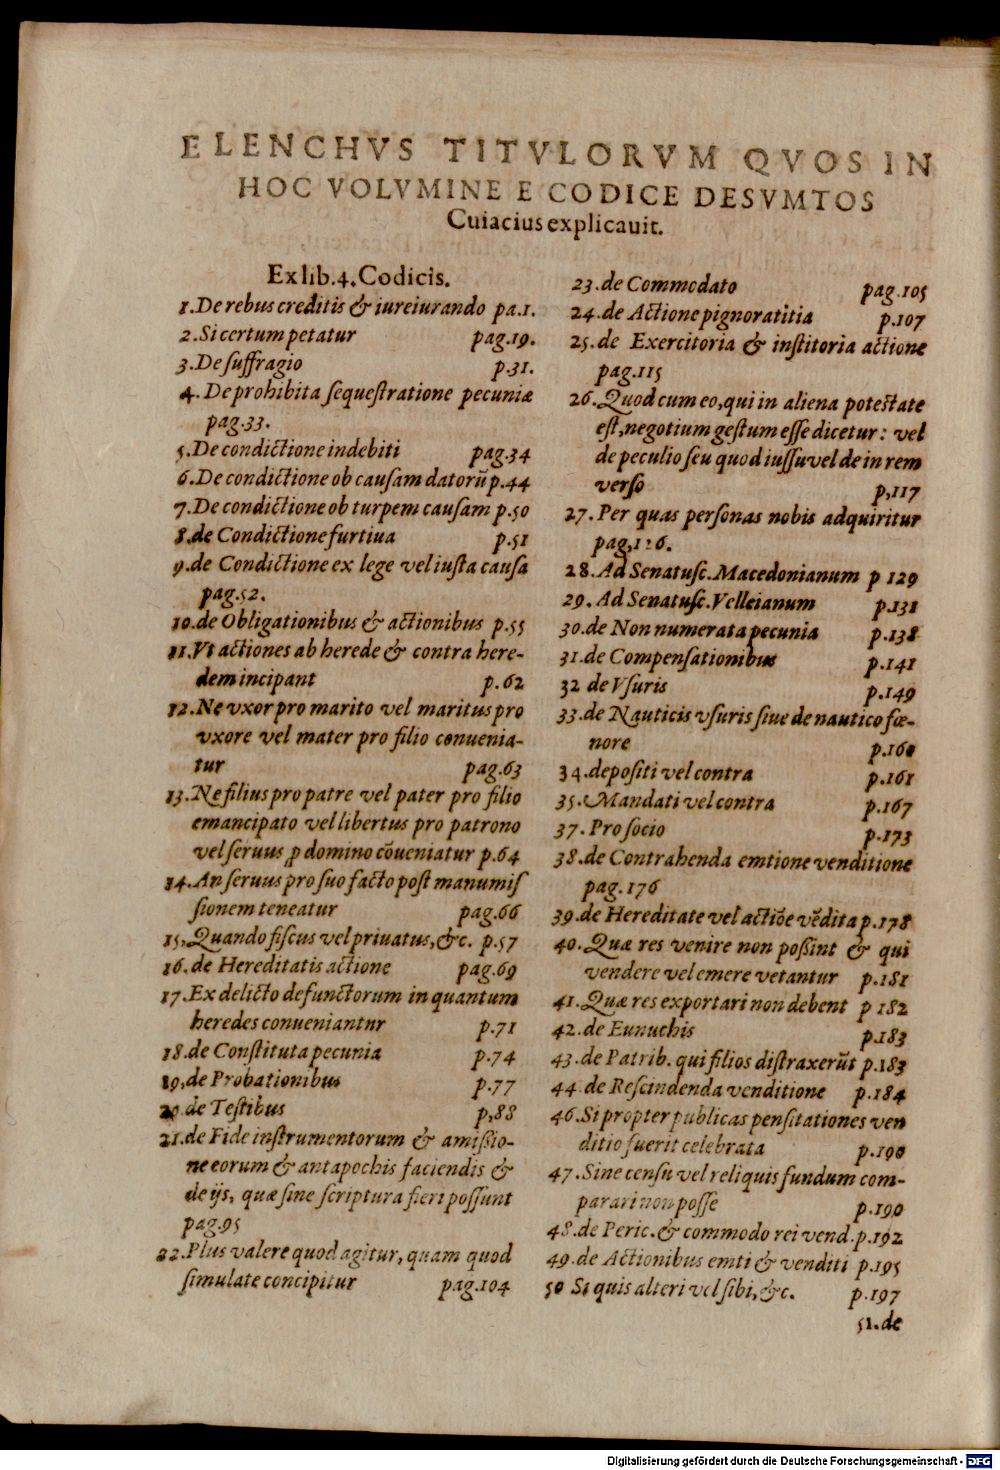 ELENCHVS TITVLORVM QVOS IN
HOC VOLVMINE E CODICE DESVMTOS
Cuiacius explicauit.
Ex lib. 4. Codicis.
1. De rebus creditis & iureiurando pa.1.
2. Si certum petatur pag.19.
3. De suffragio p.31.
4. De prohibita sequestratione pecuniæ
pag.33.
5. De condictione indebiti pag.34
6. De condictione ob causam datorū p.44
7. De condictione ob turpem causam p.50
8. de Condictione furtiua p.51
9. de Condictione ex lege vel iusta causa
pag.52.
10. de Obligationibus & actionibus p.55
11. Vt actiones ab herede & contra here-
dem incipant p.62
12. Ne vxor pro marito vel maritus pro
vxore vel mater pro filio conuenia-
tur pag.63
13. Ne filius pro patre vel pater pro filio
emancipato vel libertus pro patrono
vel seruus ꝓ domino cōueniatur p.64
14. An seruus pro suo facto post manumis
sionem teneatur pag.66
15, Quando fiscus vel priuatus, &c. p.57
16. de Hereditatis actione pag.69
17. Ex delicto defunctorum in quantum
heredes conueniantur p.71
18. de Constituta pecunia p.74
19, de Probationibus p.77
20. de Testibus p,88
21. de Fide instrumentorum & amißio-
ne eorum & antapochis faciendis &
de ijs, quæ sine scriptura fieri possunt
pag.95
22. Plus valere quod agitur, quam quod
simulate concipitur pag.104
23. de Commodato pag.105
24. de Actione pignoratitia p.107
25. de Exercitoria & institoria actione
pag.115
26. Quod cum eo, qui in aliena potestate
est, negotium gestum esse dicetur: vel
de peculio seu quod iussu vel de in rem
verso p,117
27. Per quas personas nobis adquiritur
pag,126.
28. Ad Senatusc. Macedonianum p 129
29. Ad Senatusc. Velleianum p.131
30. de Non numerata pecunia p.138
31. de Compensationibus p.141
32 de Vsuris p.149
33. de Nauticis vsuris siue de nautico fœ-
nore p.160
34. depositi vel contra p.161
35. Mandati vel contra p.167
37. Pro socio p.173
38. de Contrahenda emtione venditione
pag.176
39. de Hereditate vel actiōe vēdita p.178
40. Quæ res venire non poßint & qui
vendere vel emere vetantur p.181
41. Quæ res exportari non debent p 182
42. de Eunuchis p.183
43. de Patrib. qui filios distraxerūt p.183
44 de Rescindenda venditione p.184
46. Si propter publicas pensitationes ven
ditio fuerit celebrata p.190
47. Sine censu vel reliquis fundum com-
parari non posse p.190
48. de Peric. & commodo rei vend. p.192
49. de Actionibus emti & venditi p.195
50 Si quis alteri vel sibi, &c. p.197
51. de
Digitalisierung gefördert durch die Deutsche Forschungsgemeinschaft - DFG